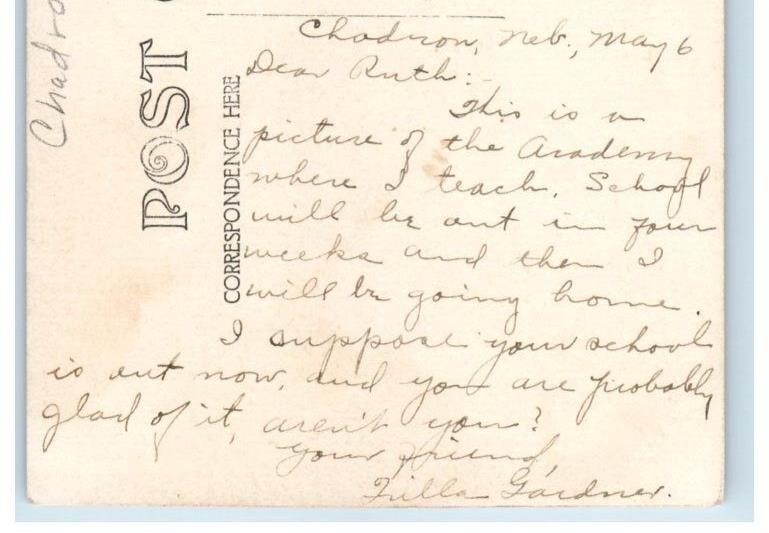 Chadro
POST
CORRESPONDENCE HERE
Chadron, Neb., May 6
Dear Ruth:-
This is a
picture of the Academy
where I teach. School
will be out in four
weeks and then I
will be going home.
I suppose your school
is out now, and you are probably
glad of it, aren't you?
Your friend,
Gardner.